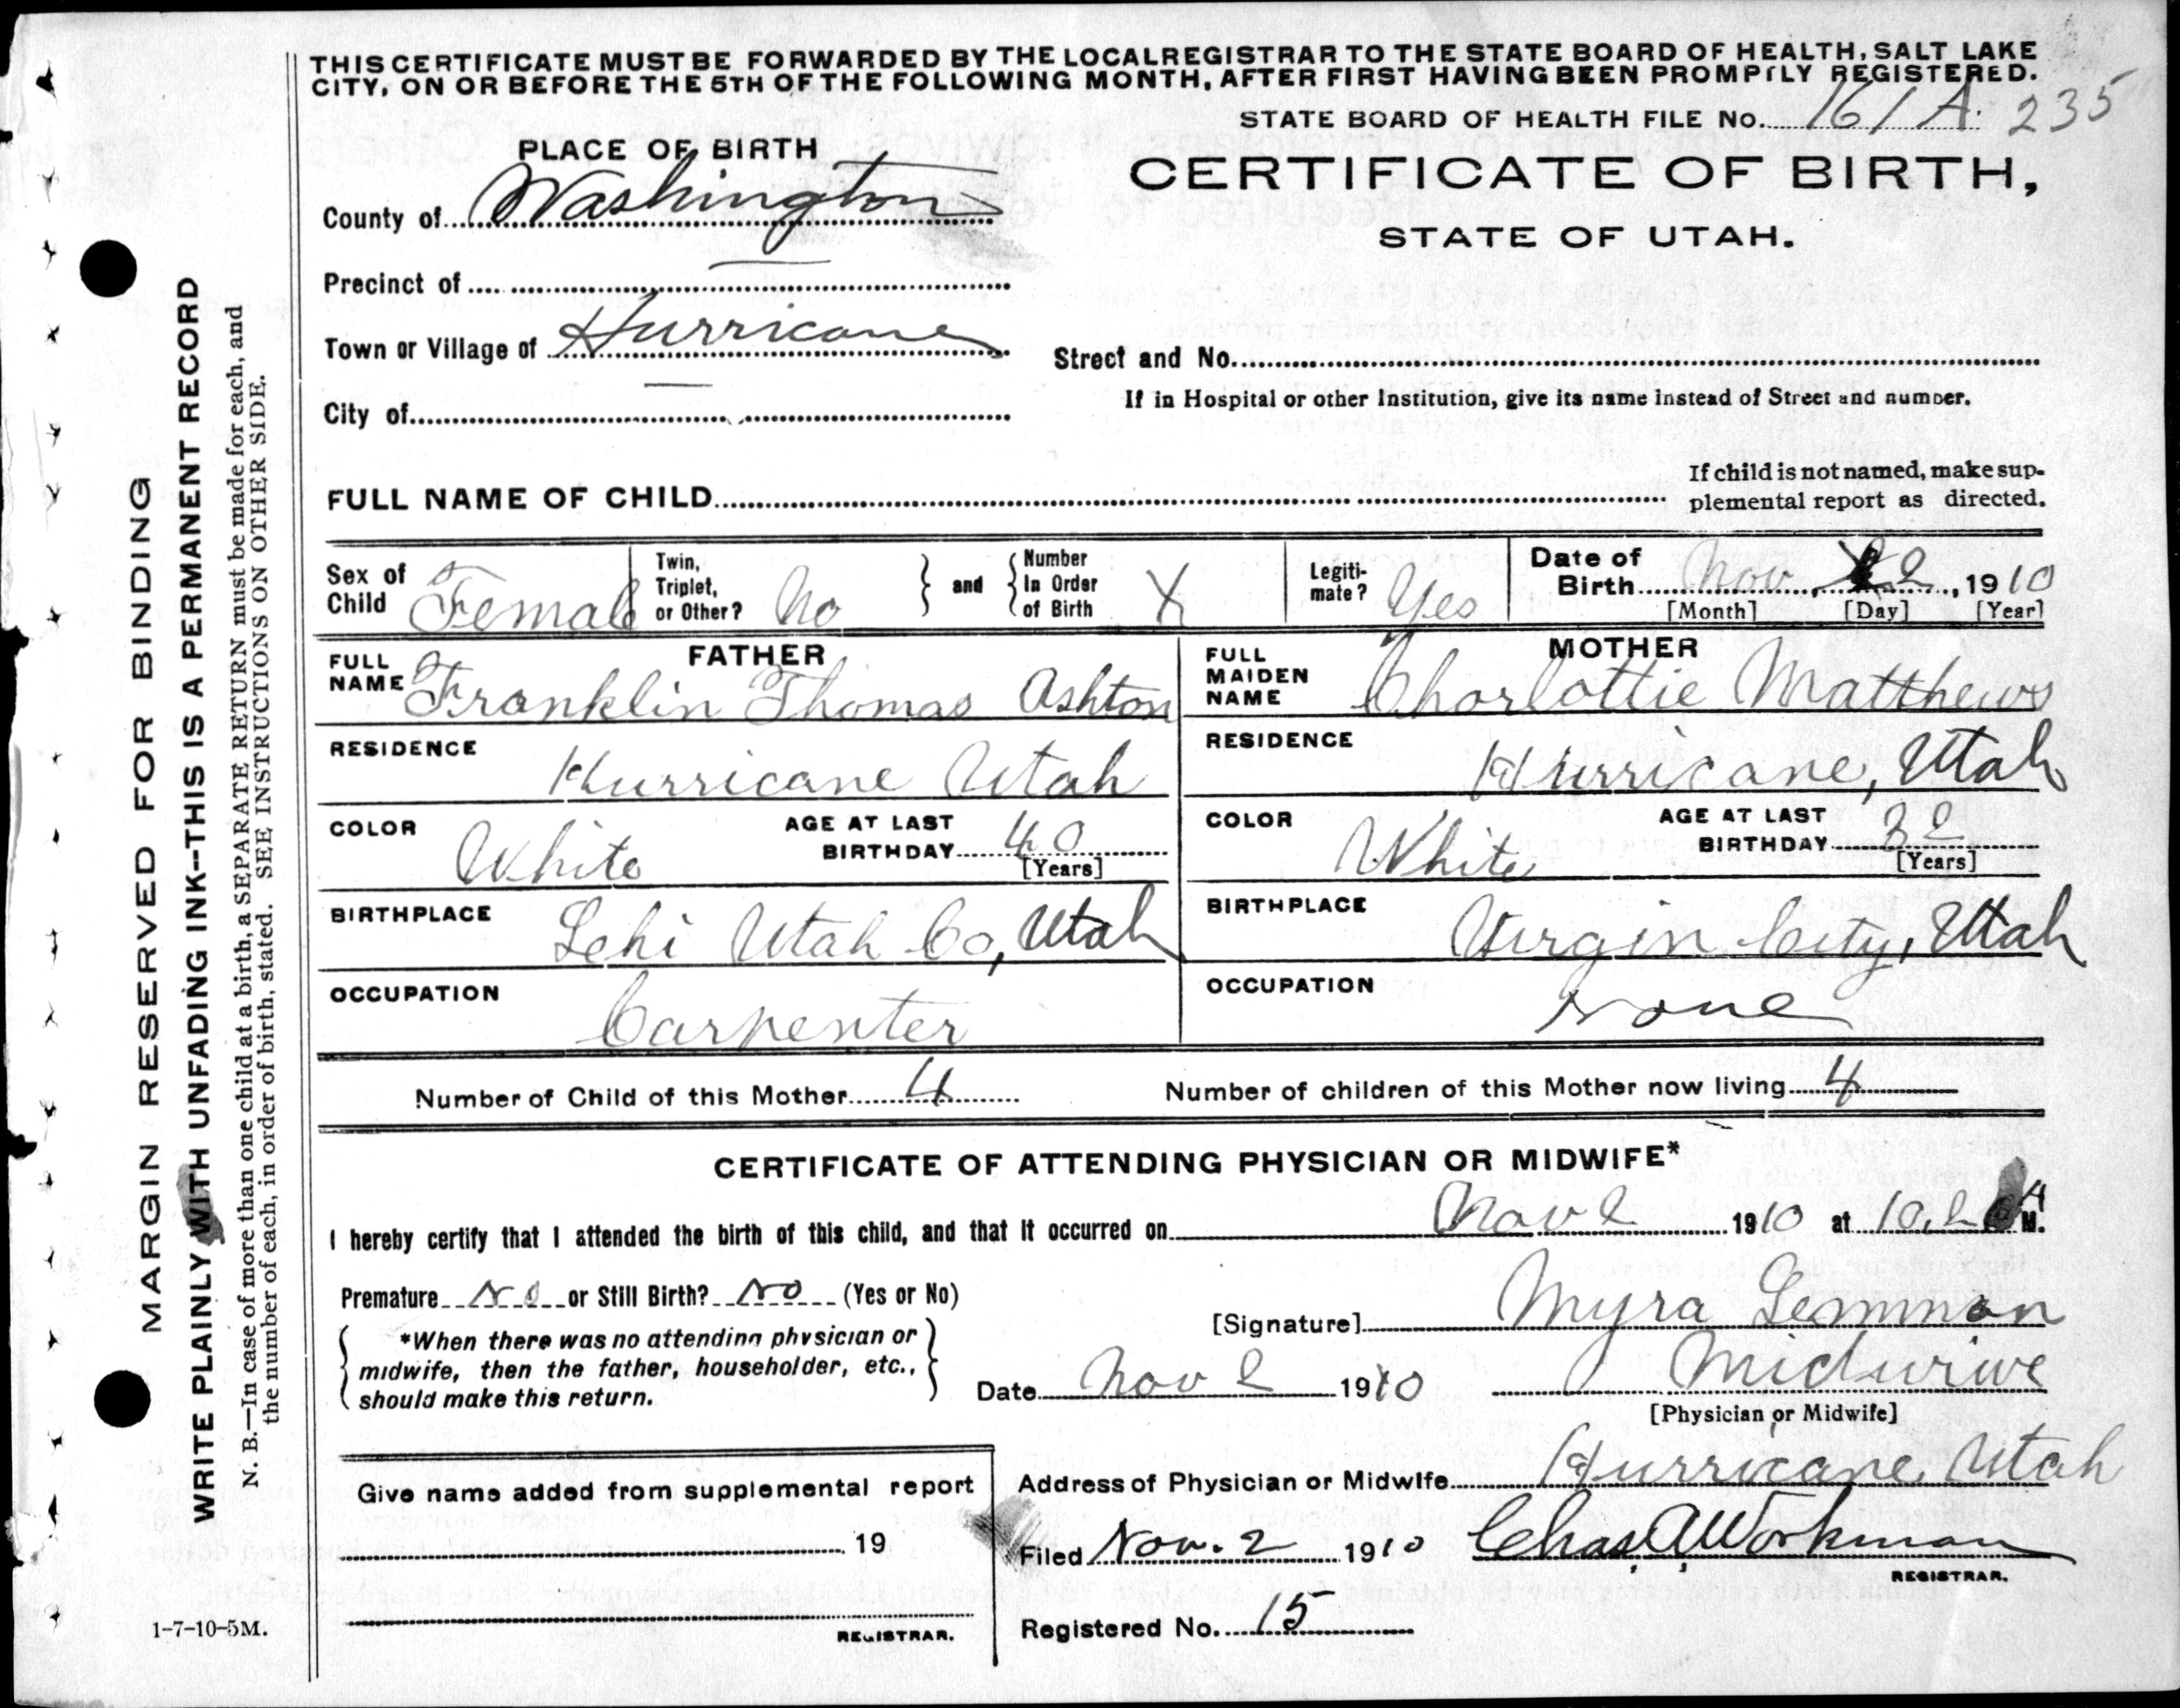 THIS CERTIFICATE MUST BE FORWARDED BY THE LOCAL REGISTRAR TO THE STATE BOARD OF HEALTH, SALT LAKE
CITY, ON OR BEFORE THE 5TH OF THE FOLLOWING MONTH, AFTER FIRST HAVING BEEN PROMPTLY REGISTERED.
STATE BOARD OF HEALTH FILE No. 161 A. 235
PLACE OF BIRTH
CERTIFICATE OF BIRTH,
STATE OF UTAH.
County of Washington
Precinct of
Town or Village of Hurricane
Street and No.
If in Hospital or other Institution, give its name instead of Street and number.
City of
FULL NAME OF CHILD
If child is not named, make sup-
plemental report as directed.
Sex of Child Female
Twin, Triplet, or Other? No
and
Number In Order of Birth X
Legiti-mate? Yes
Date of Birth Nov 2, 1910
[Month] [Day] [Year]
FATHER
FULL NAME Franklin Thomas Ashton
MOTHER
FULL MAIDEN NAME Charlottie Matthews
RESIDENCE Hurricane Utah
RESIDENCE Hurricane, Utah
COLOR White AGE AT LAST BIRTHDAY 40 [Years]
COLOR White AGE AT LAST BIRTHDAY 32 [Years]
BIRTHPLACE Lehi Utah Co, Utah
BIRTHPLACE Virgin City, Utah
OCCUPATION Carpenter
OCCUPATION None
Number of Child of this Mother 4 Number of children of this Mother now living 4
CERTIFICATE OF ATTENDING PHYSICIAN OR MIDWIFE*
I hereby certify that I attended the birth of this child, and that it occurred on Nov 2 1910 at A M.
Premature No or Still Birth? No (Yes or No)
[Signature] Myra Lemmon
*When there was no attending physician or
midwife, then the father, householder, etc.,
should make this return.
Date Nov 2 1910 Midwive
[Physician or Midwife]
Address of Physician or Midwife Hurricane Utah
Give name added from supplemental report
19
REGISTRAR.
Filed Nov. 2 1910 Chas. A. Workman
REGISTRAR.
Registered No. 15
1-7-10-5M.
MARGIN RESERVED FOR BINDING
WRITE PLAINLY WITH UNFADING INK--THIS IS A PERMANENT RECORD
N. B.—In case of more than one child at a birth, a SEPARATE RETURN must be made for each, and
the number of each, in order of birth, stated. SEE INSTRUCTIONS ON OTHER SIDE.